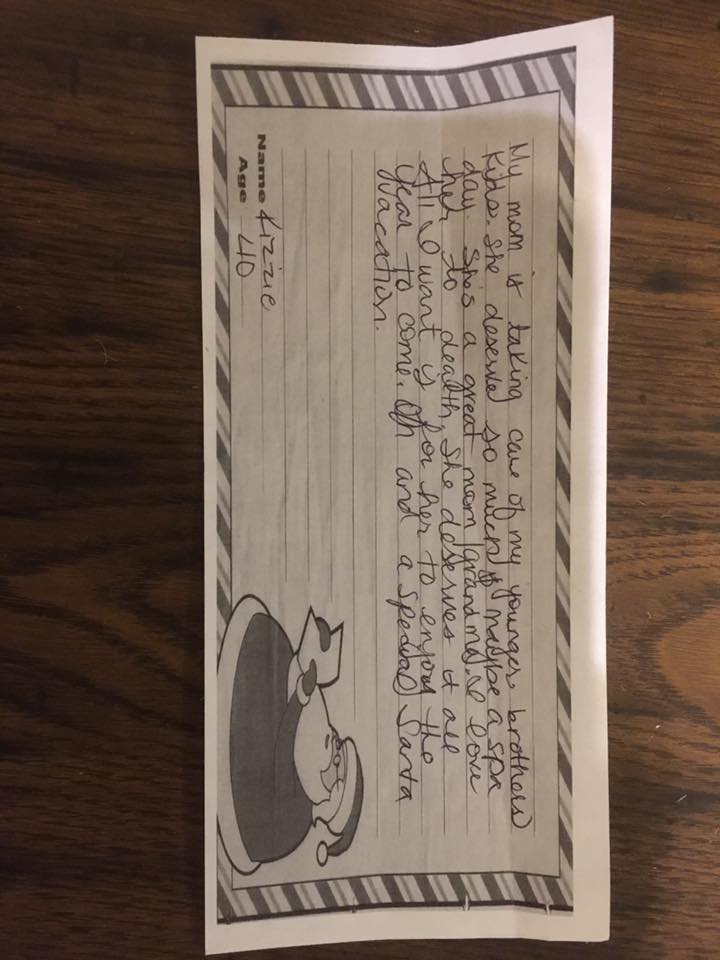 My mom is taking care of my younger brothers
kids. She deserve so much & maybe a spa
day. She's a great mom/grandma. I love
her to death. She deserves it all
All I want is for her to enjoy the
year to come. Oh and a special Santa
Vacation.
Name Kizzie
Age 40